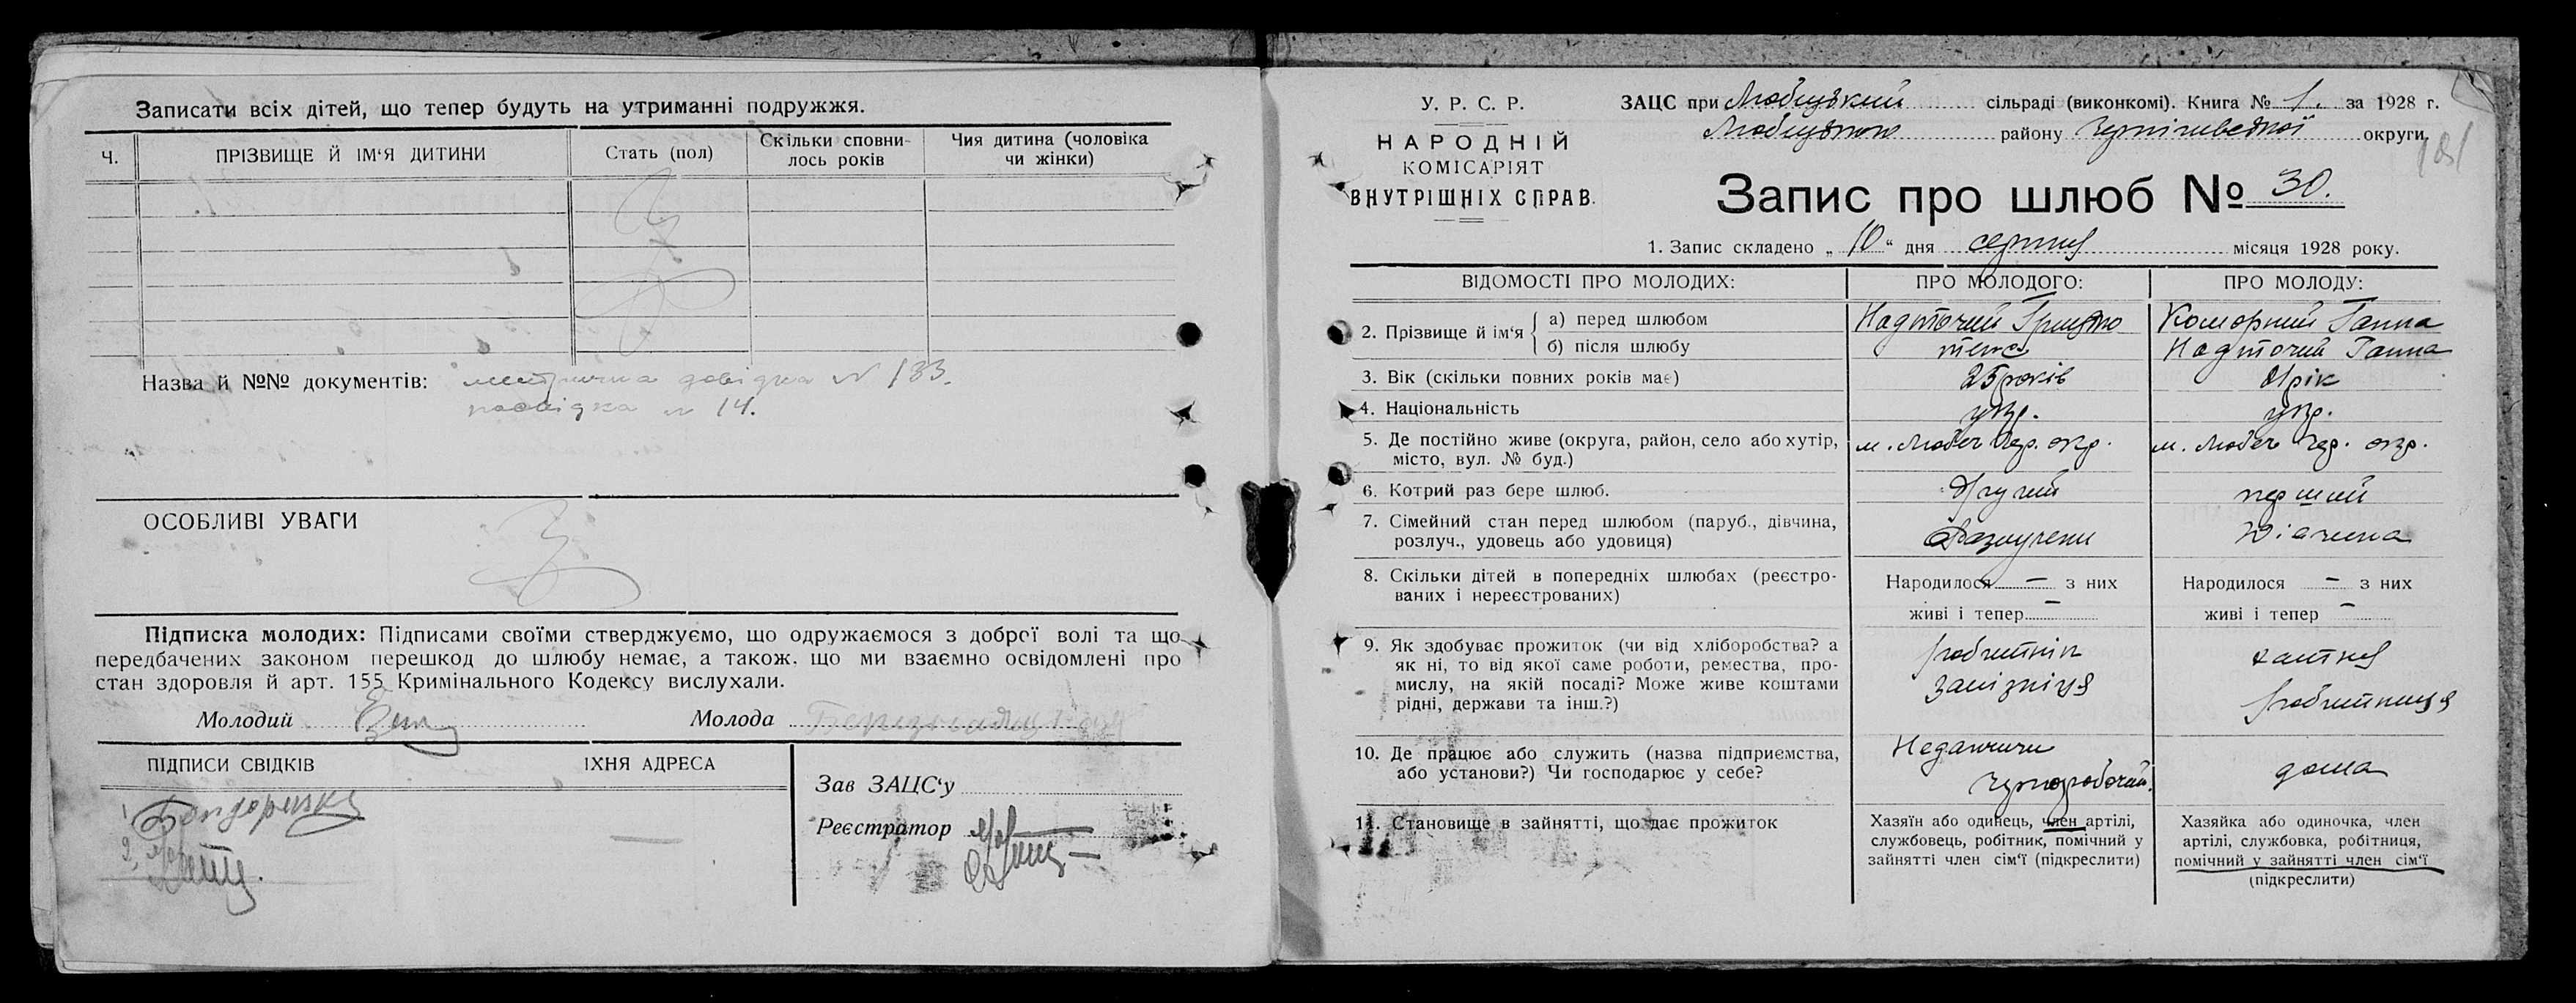 Записати всіх дітей, що тепер будуть на утриманні подружжя.
Ч. ПРІЗВИЩЕ Й ІМ‘Я ДИТИНИ Стать (пол) Скільки сповни-лось років Чия дитина (чоловіка чи жінки)
Назва й №№ документів: метрична довідка № 133.
посвідка № 14.
ОСОБЛИВІ УВАГИ
Підписка молодих: Підписами своїми стверджуємо, що одружаємося з доброї волі та що
передбачених законом перешкод до шлюбу немає, а також, що ми взаємно освідомлені про
стан здоровля й арт. 155 Кримінального Кодексу вислухали.
Молодий Молода
ПІДПИСИ СВІДКІВ ЇХНЯ АДРЕСА
1
2,
Зав ЗАЦС‘у
Реєстратор
У. Р. С. Р.
НАРОДНІЙ
КОМІСАРІЯТ
ВНУТРІШНІХ СПРАВ.
ЗАЦС при Любецький сільраді (виконкомі). Книга № 1. за 1928 г.
Любецького району Чернігівської округи
181
Запис про шлюб № 30.
1. Запис складено „10“ дня серпня місяця 1928 року.
ВІДОМОСТІ ПРО МОЛОДИХ: ПРО МОЛОДОГО: ПРО МОЛОДУ:
2. Прізвище й ім‘я
а) перед шлюбом Надточий Грицько Коморний Ганна
б) після шлюбу теж Надточий Ганна
3. Вік (скільки повних років має) 25 років рік
4. Національність укр. укр.
5. Де постійно живе (округа, район, село або хутір,
місто, вул. № буд.) м. Любеч Чер. окр. м. Любеч Чер. окр.
6. Котрий раз бере шлюб. Другий перший
7. Сімейний стан перед шлюбом (паруб., дівчина,
розлуч., удовець або удовиця) Розлучени Дівчина
8. Скільки дітей в попередніх шлюбах (реєстро-
ваних і нереєстрованих)
Народилося — з них
живі і тепер —
Народилося — з них
живі і тепер —
9. Як здобуває прожиток (чи від хліборобства? а
як ні, то від якої саме роботи, ремества, про-
мислу, на якій посаді? Може живе коштами
рідні, держави та інш.?)
робитнік
залізніця
хатня
робитниця
10. Де працює або служить (назва підприємства,
або установи?) Чи господарює у себе?
Неданчичи
Черноробочий.
дома
11. Становище в зайнятті, що дає прожиток
Хазяїн або одинець, член артілі,
службовець, робітник, помічний у
зайнятті член сім‘ї (підкреслити)
Хазяйка або одиночка, член
артілі, службовка, робітниця,
помічний у зайнятті член сім‘ї
(підкреслити)